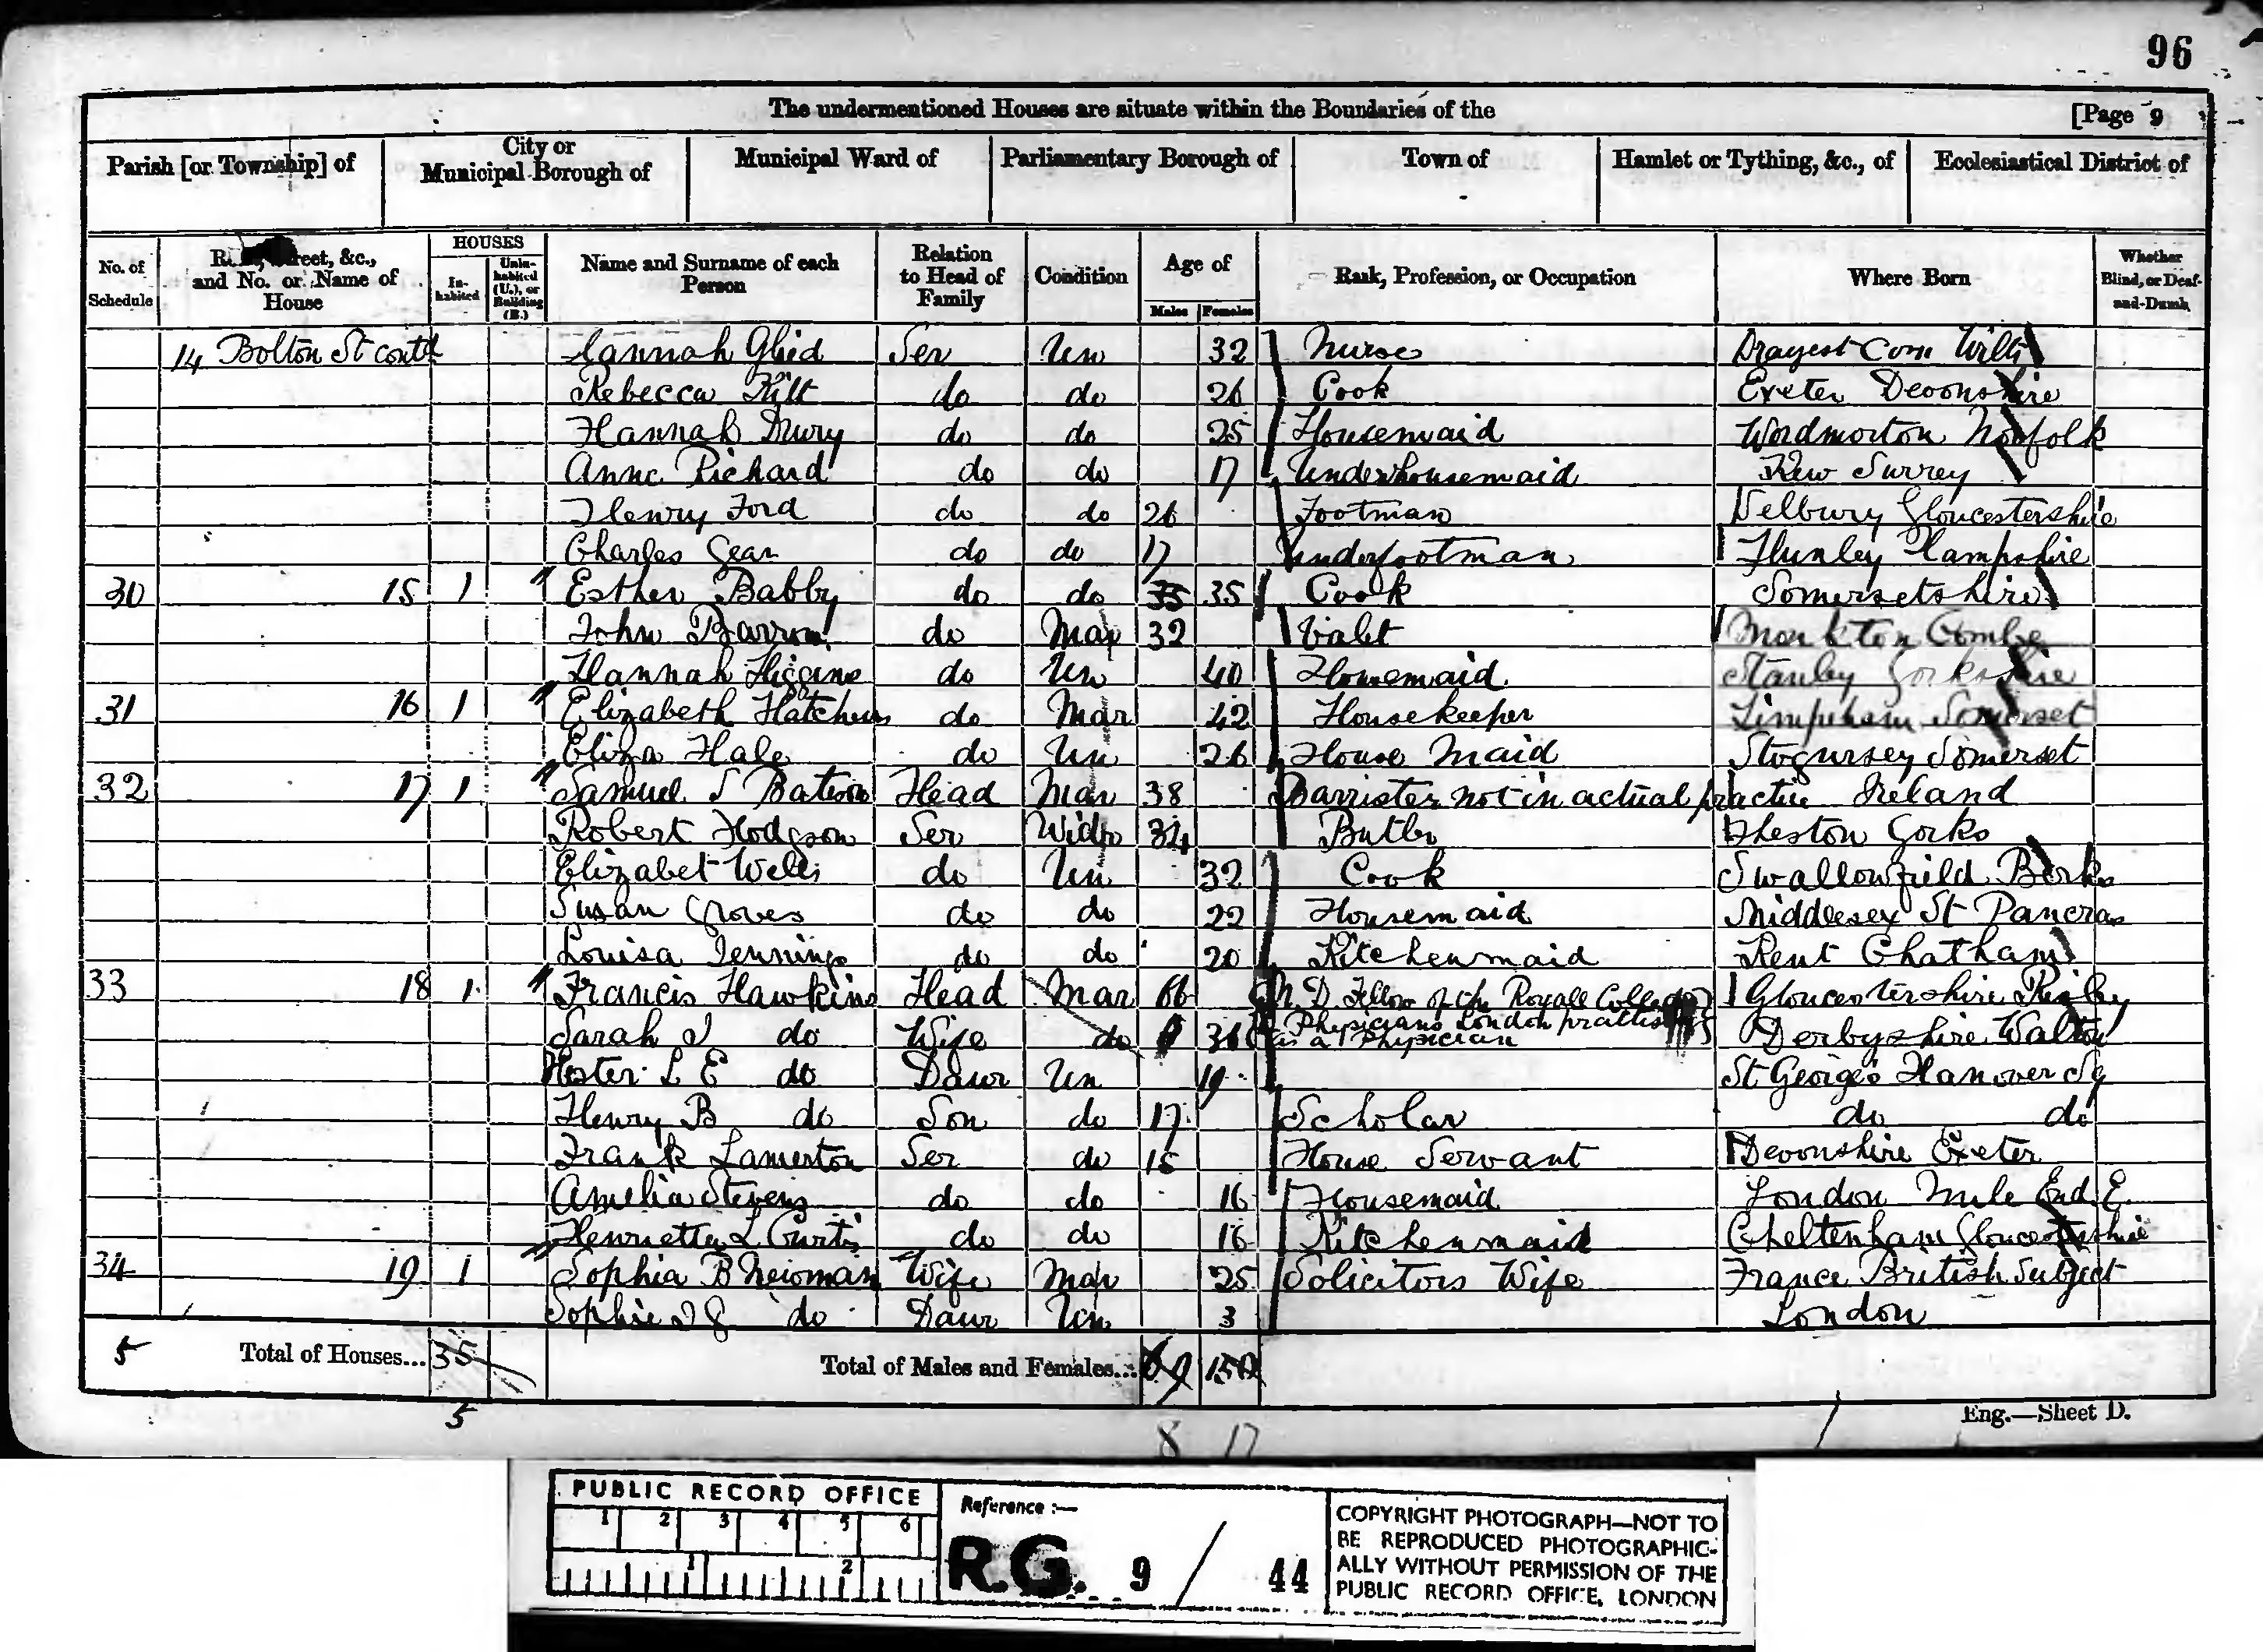 96
The undermentioned Houses are situate within the Boundaries of the [Page 9
Parish [or Township] of City or Municipal Borough of Municipal Ward of Parliamentary Borough of Town of Hamlet or Tything, &c., of Ecclesiastical District of
No. of Schedule Street, &c., and No. or Name of House HOUSES Inhabited Uninhabited (U.), or Building (B.) Name and Surname of each Person Relation to Head of Family Condition Age of Males Females Rank, Profession, or Occupation Where Born Whether Blind, or Deaf-and-Dumb
14 Bolton St contd Hannah Ser Un 32 Nurse Wilts
Rebecca do do 26 Cook Exeter Devonshire
Hannah Drury do do 25 Housemaid Norfolk
Anne Pichard do do 17 Underhousemaid Kew Surrey
Henry Ford do do 26 Footman Gloucestershire
Charles Gear do do 17 Underfootman Hampshire
30 15 1 Esther Babby do do 35 35 Cook Somersetshire
John Barron do Mar 32 Valet Monkton Combe
Hannah Higgins do Un 40 Housemaid Stanley Yorkshire
31 16 1 Elizabeth do Mar 42 Housekeeper Somerset
Eliza Hale do Un 26 House Maid Stogursey Somerset
32 17 1 Samuel S Bateson Head Mar 38 Barrister not in actual practice Ireland
Robert Hodgson Ser Widr 34 Butler Yorks
Elizabet Wells do Un 32 Cook Swallowfield Berks
Susan Groves do do 22 Housemaid Middlesex St Pancras
Louisa Jennings do do 20 Kitchenmaid Kent Chatham
33 18 1 Francis Hawkins Head Mar 66 M.D. Fellow of the Royall College Gloucestershire
Physicians London
Sarah J do Wife do as a Physician Derbyshire Walton
Hester L E do Daur Un 19 St George's Hanover Sq
Henry B do Son do 17 Scholar do do
Frank Lamerton Ser do 15 House Servant Devonshire Exeter
Amelia Stevens do do 16 Housemaid London Mile End E.
Henrietta L Curtis do do 16 Kitchenmaid Cheltenham Gloucestershire
34 19 1 Sophia B Wife Mar 25 Solicitors Wife France British Subject
Sophie do Daur Un 3 London
5 Total of Houses... 35 Total of Males and Females... 69 150
5 8 17 Eng.—Sheet D.
PUBLIC RECORD OFFICE
1 2 3 4 5 6
1 2
Reference :—
R.G. 9 / 44
COPYRIGHT PHOTOGRAPH—NOT TO
BE REPRODUCED PHOTOGRAPHIC-
ALLY WITHOUT PERMISSION OF THE
PUBLIC RECORD OFFICE, LONDON